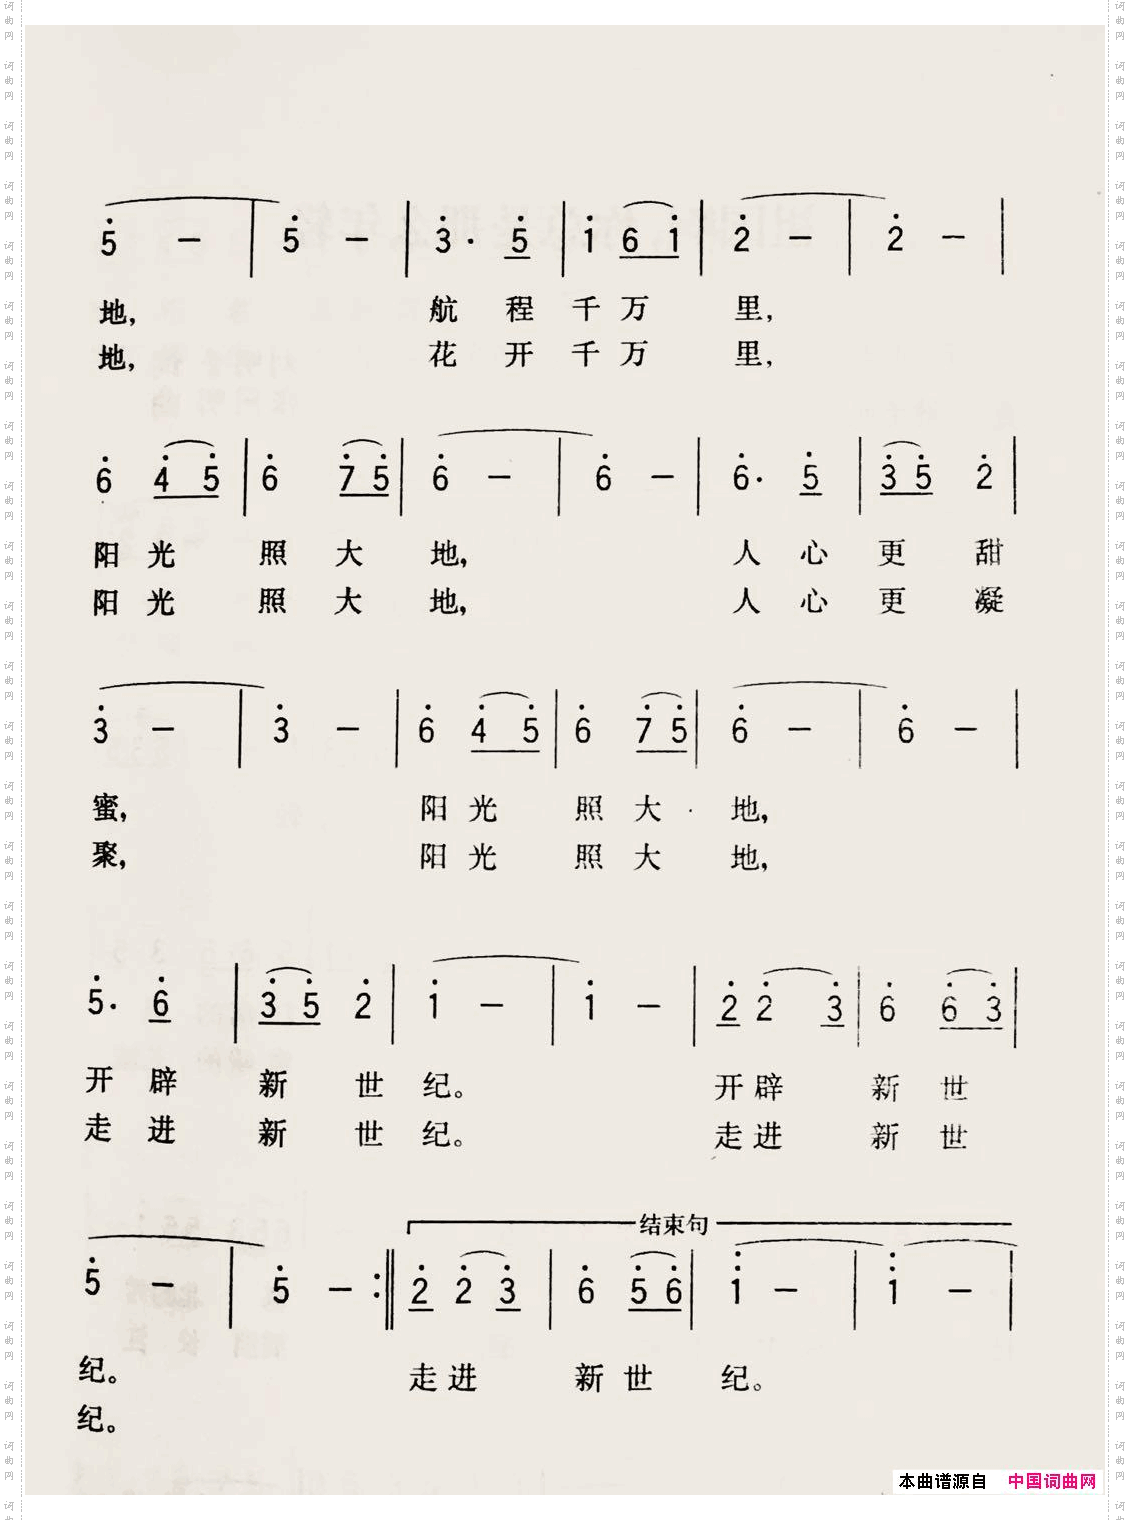 5 — | 5 — | 3· 5 | i 6 1 | 2 — | 2 — |
地， 航 程 千 万 里，
地， 花 开 千 万 里，
6 4 5 | 6 7 5 | 6 — | 6 — | 6· 5 | 3 5 2 |
阳 光 照 大 地， 人 心 更 甜
阳 光 照 大 地， 人 心 更 凝
3 — | 3 — | 6 4 5 | 6 7 5 | 6 — | 6 — |
蜜， 阳 光 照 大 地，
聚， 阳 光 照 大 地，
5· 6 | 3 5 2 | 1 — | 1 — | 2 2 3 | 6 6 3 |
开 辟 新 世 纪。 开 辟 新 世
走 进 新 世 纪。 走 进 新 世
结束句
5 — | 5 — :‖ 2 2 3 | 6 5 6 | 1 — | 1 — |
纪。 走 进 新 世 纪。
纪。
本曲谱源自 中国词曲网